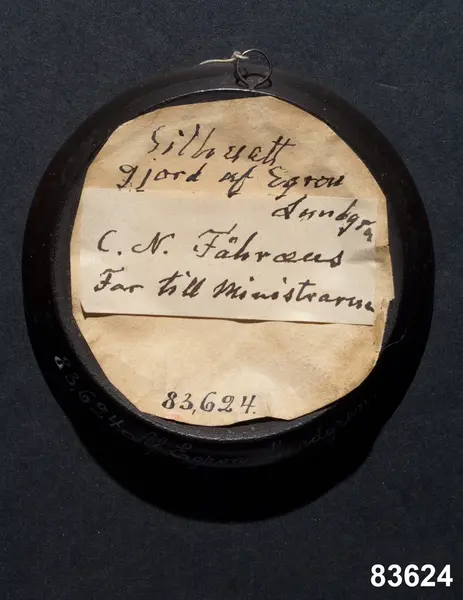 Silhouett
gjord af Egron
Lundgren
C. N. Fåhræus
Far till Ministrarne
83,624.
83,624 Af Egron Lundgren.
83624